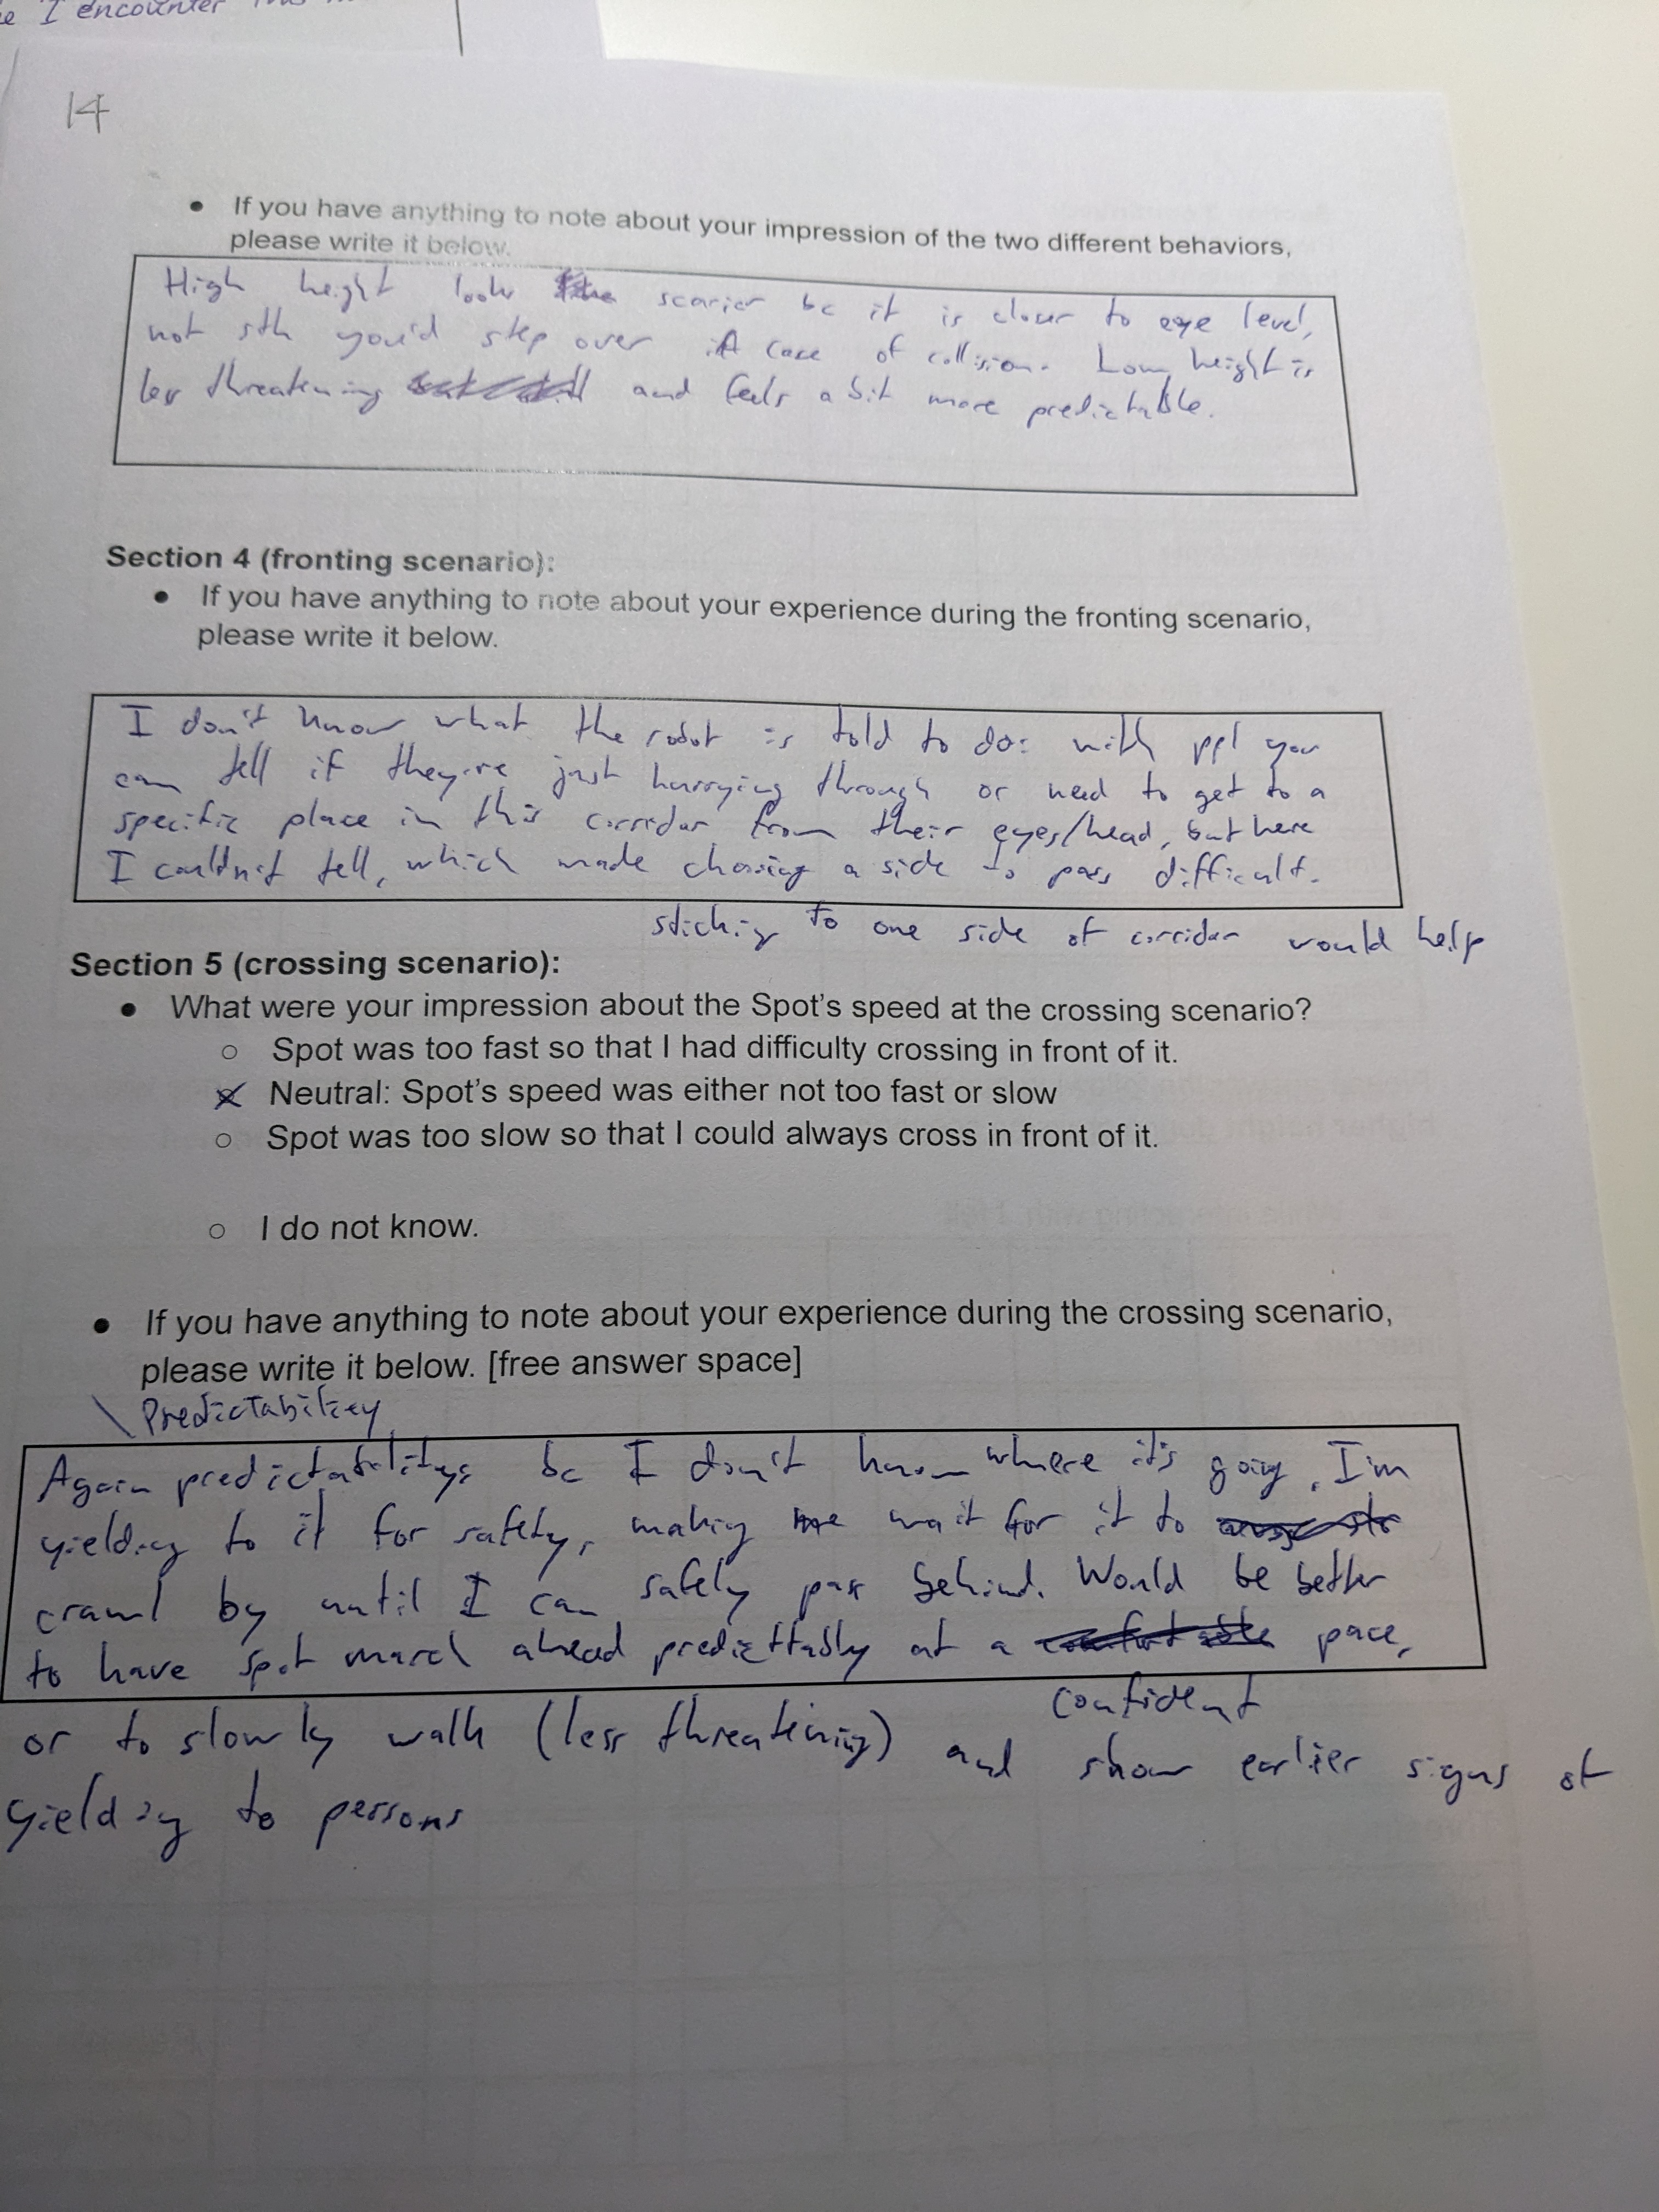 I encounter
14
• If you have anything to note about your impression of the two different behaviors,
please write it below.
High height looks scarier bc it is closer to eye level,
not sth you'd step over in case of collision. Low height is
less threatening and feels a bit more predictable.
Section 4 (fronting scenario):
• If you have anything to note about your experience during the fronting scenario,
please write it below.
I don't know what the robot is told to do: with ppl you
can tell if they're just hurrying through or need to get to a
specific place in this corridor from their eyes/head, but here
I couldn't tell, which made chosing a side to pass difficult.
sticking to one side of corridor would help
Section 5 (crossing scenario):
• What were your impression about the Spot's speed at the crossing scenario?
○ Spot was too fast so that I had difficulty crossing in front of it.
Neutral: Spot's speed was either not too fast or slow
○ Spot was too slow so that I could always cross in front of it.
○ I do not know.
• If you have anything to note about your experience during the crossing scenario,
please write it below. [free answer space]
\ Predictability
Again predictability: bc I don't know where it's going, I'm
yielding to it for safety, making me wait for it to
crawl by until I can safely pass behind. Would be better
to have spot march ahead predicttably at a pace,
confident
or to slowly walk (less threatening) and show earlier signs of
yielding to persons